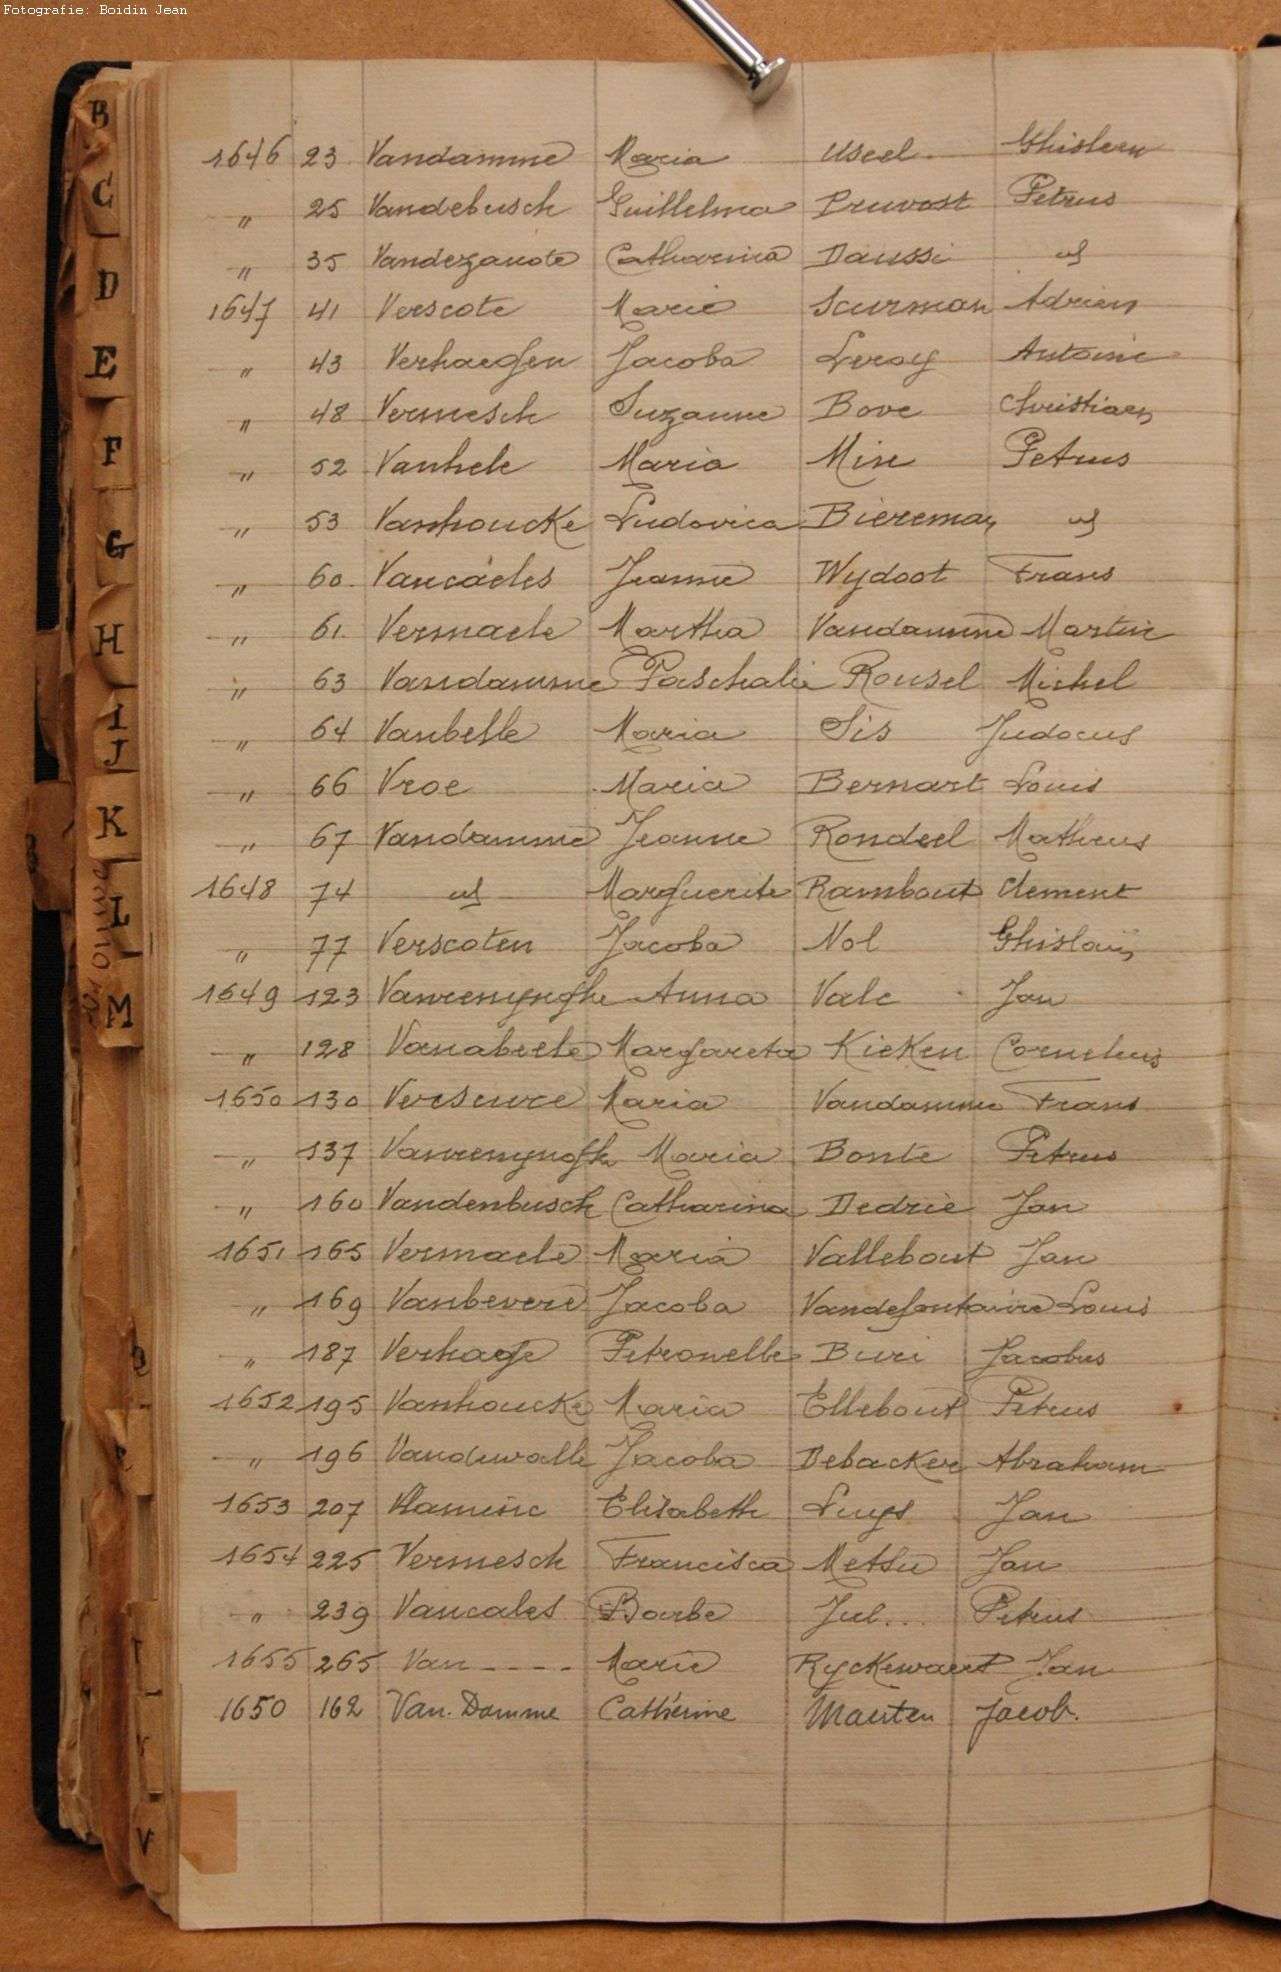 Fotografie: Boidin Jean
1646 23 Vandamme Maria Useel Ghisleen
" 25 Vandebusch Guillelma Pruvost Petrus
" 35 Vandezande Catharina Daussi id
1647 41 Verscote Marie Scurman Adrien
" 43 Verhaegen Jacoba Leroy Antoine
" 48 Vermesch Suzanne Bove Christiaen
" 52 Vanhele Maria Petrus
" 53 Vanhoucke Ludovica Biereman id
" 60 Vancaeles Jeanne Wydoot Frans
" 61. Vermaele Martha Vandamme Martin
" 63 Vandamme Paschalie Rousel Michel
" 64 Vanbelle Maria Sis Judocus
" 66 Vroe Maria Bernart Louis
" 67 Vandamme Jeanne Rondeel Matheus
1648 74 id Marguerite Rambout Clement
" 77 Verscoten Jacoba Nol Ghislain
1649 123 Vanrenynghe Anna Vale Jan
" 128 Vanabeele Margareta Kieken Cornelius
1650 130 Verscure Maria Vandamme Frans
" 137 Vanrenyngh Maria Bonte Petrus
" 160 Vandenbusch Catharina Dedrie Jan
1651 165 Vermaele Maria Vallebout Jan
" 169 Vanbevere Jacoba Vandefontaine Louis
" 187 Verhage Petronelle Buri Jacobus
1652 195 Vanhoucke Maria Ellebout Petrus
" 196 Vandewalle Jacoba Debacker Abraham
1653 207 Vlaminc Elisabeth Luys Jan
1654 225 Vermesch Francisca Metsu Jan
" 239 Vancales Barbe Jul... Petrus
1655 265 Van ---- Marie Ryckewaert Jan
1650 162 Van. Damme Cathérine Maerten Jacob.
B
C
D
E
F
G
H
I
J
K
L
M
V